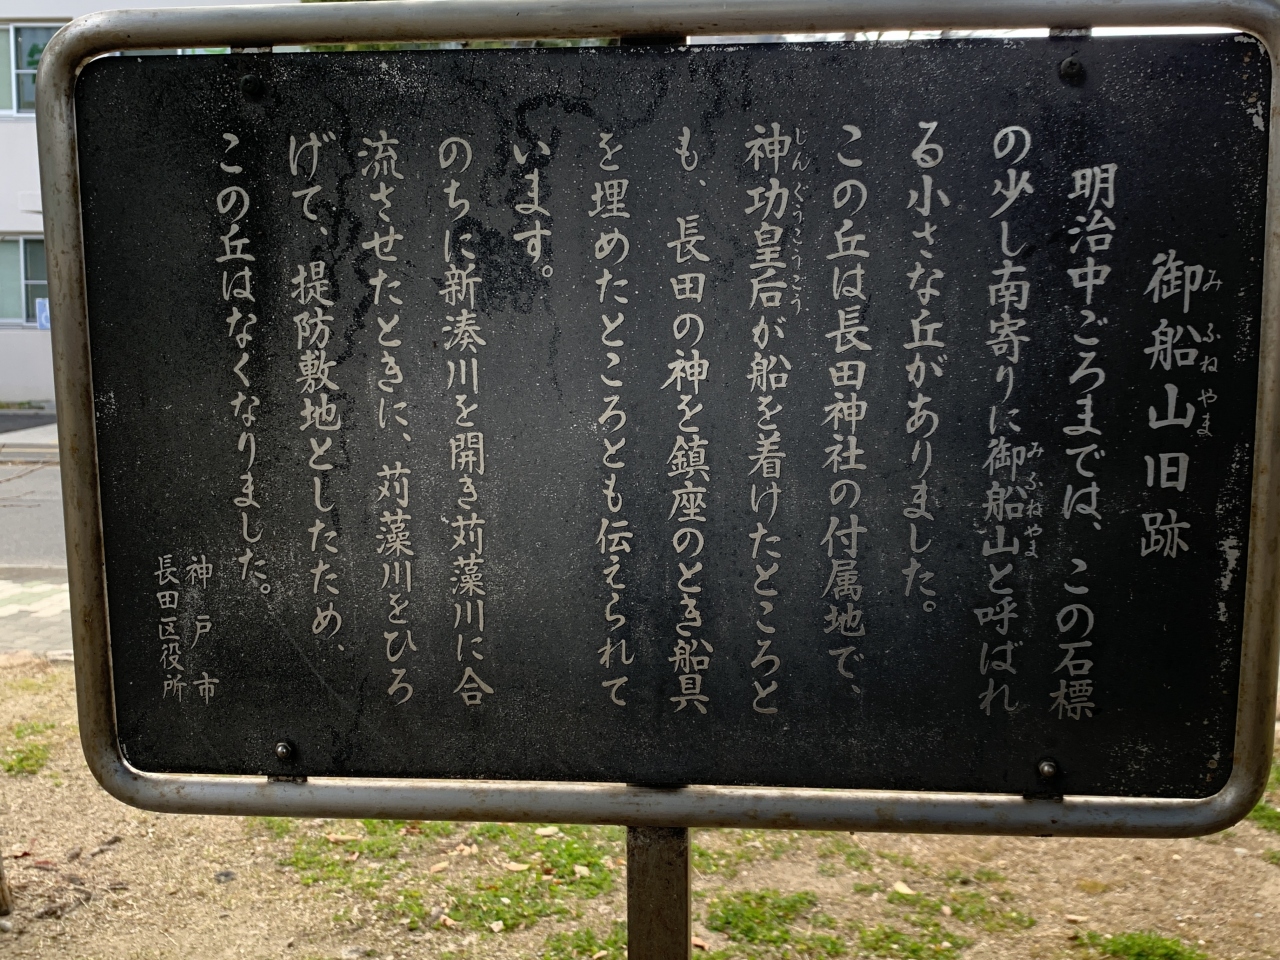 御船山旧跡
みふねやま
明治中ごろまでは、この石標
の少し南寄りに御船山と呼ばれ
みふねやま
る小さな丘がありました。
この丘は長田神社の付属地で、
神功皇后が船を着けたところと
じんくうこうこう
も、長田の神を鎮座のとき船具
を埋めたところとも伝えられて
います。
のちに新湊川を開き苅藻川に合
流させたときに、苅藻川をひろ
げて、提防敷地としたため、
この丘はなくなりました。
神戸市
長田区役所